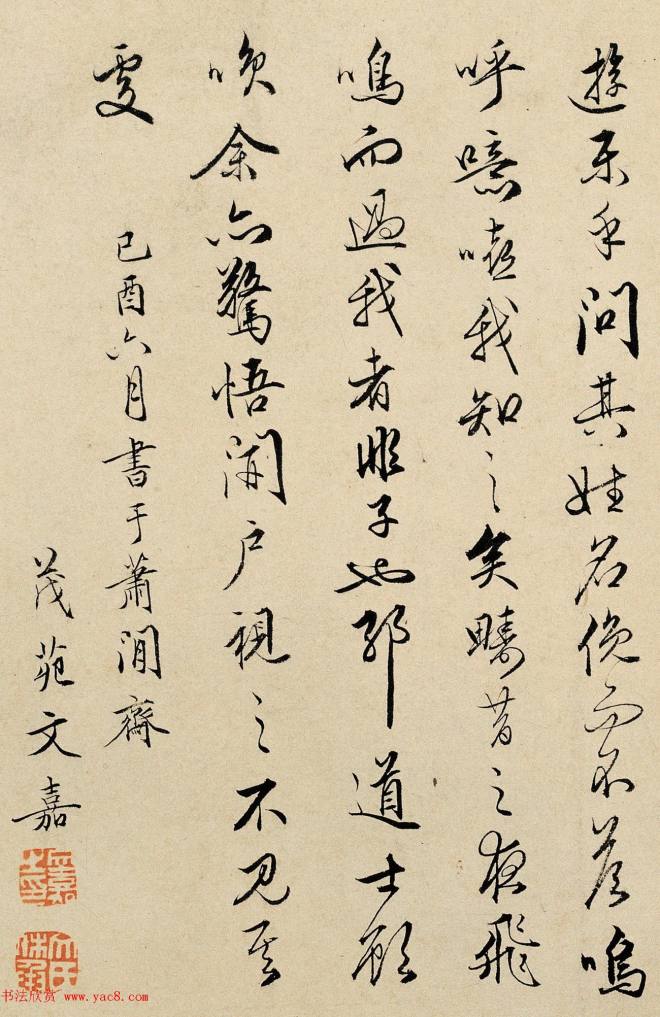 遊樂乎問其姓名俛而不答嗚
呼噫嘻我知之矣疇昔之夜飛
鳴而過我者非子也耶道士顧
咲余亦驚悟開戶視之不見其
處
己酉六月書于蕭閒齋
茂苑文嘉
书法欣赏 www.yac8.com